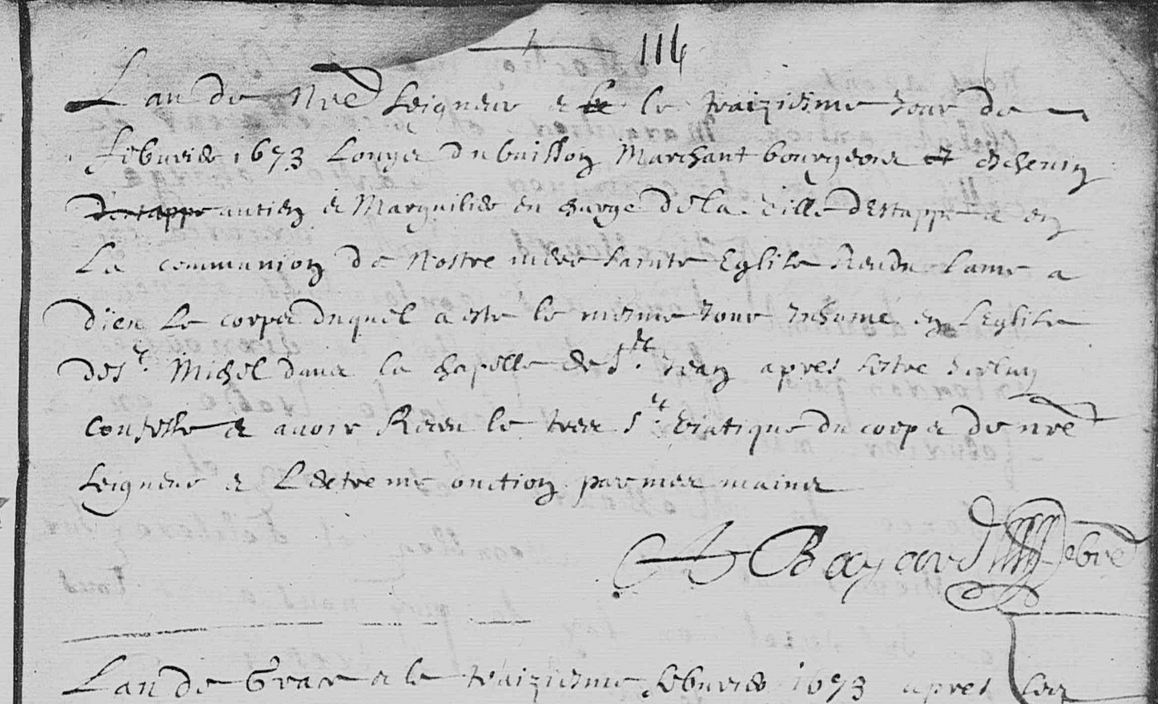 114
Lan de nre Seigneur & le le traiziesme Jour de
febvrier 1673 Louys du buisson Marchant bourgeois et Eschevin
d'estappe antien & Marguilier en charge de la Ville d'Estappe & en
La communion de Nostre mere Sainte Eglise Rendu Lame a
dieu Le corps duquel a esté le mesme Jour Inhumé en L'Eglise
de St. Michel dans la chapelle de St. Jean apres sestre
confesse & avoir Receu le tres St. Viatique du corps de nre
Seigneur & L'extreme onction par mes mains
A Bayard pbre
Lan de Grace & le traiziesme febvrier 1673 apres